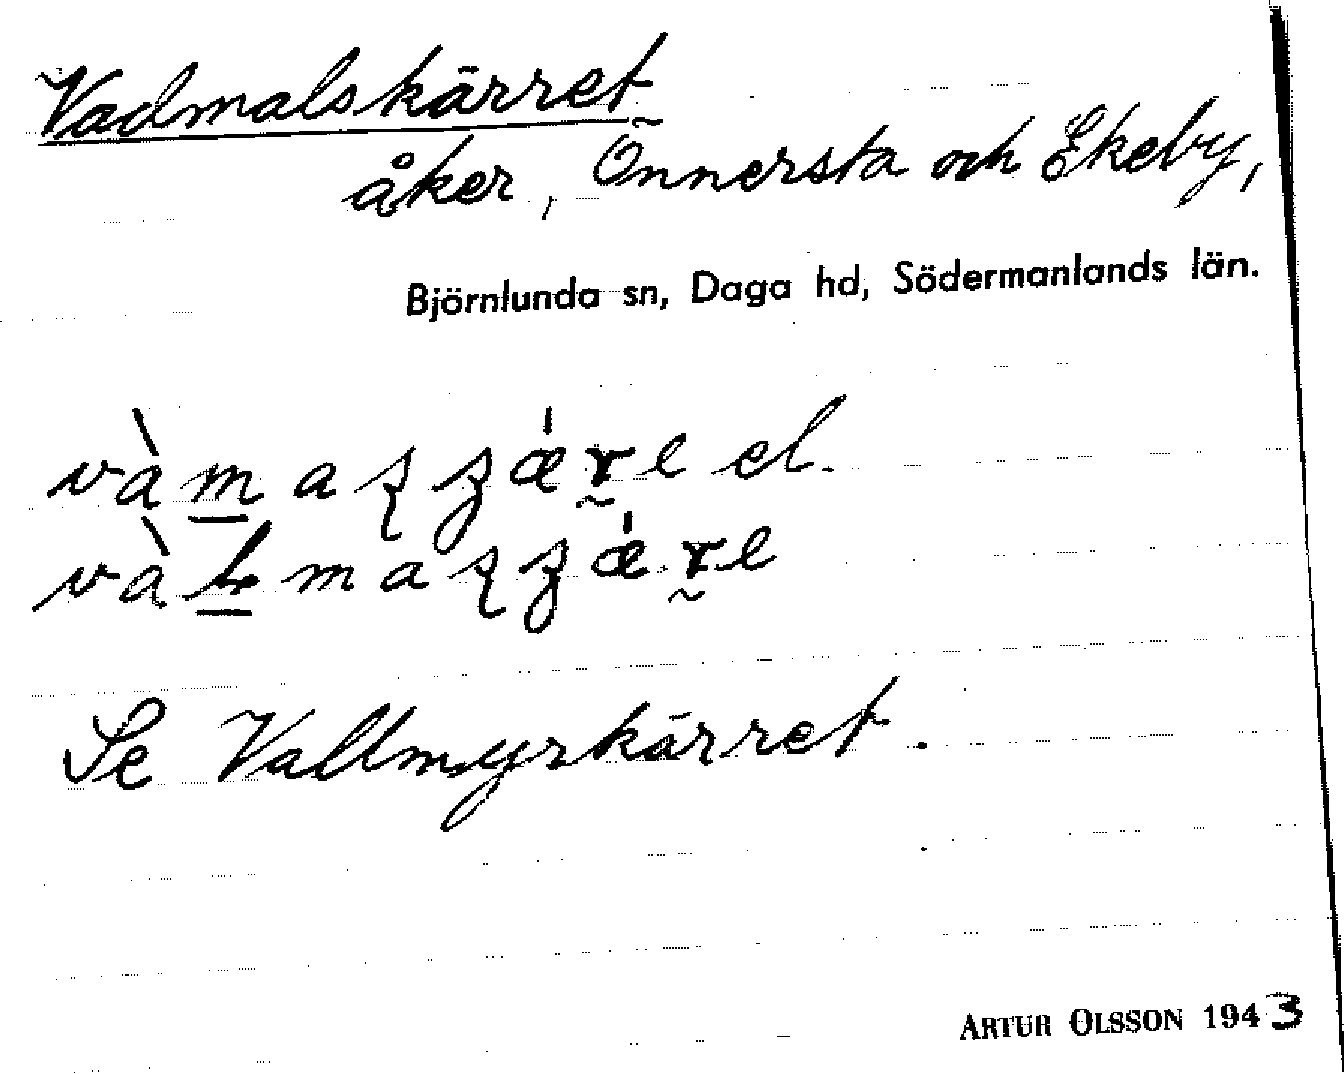 Vadmalskärret
åker, Önnersta och Ekeby,
Björnlunda sn, Daga hd, Södermanlands län.
el.
Se Vallmyrkärret.
ARTUR OLSSON 1943